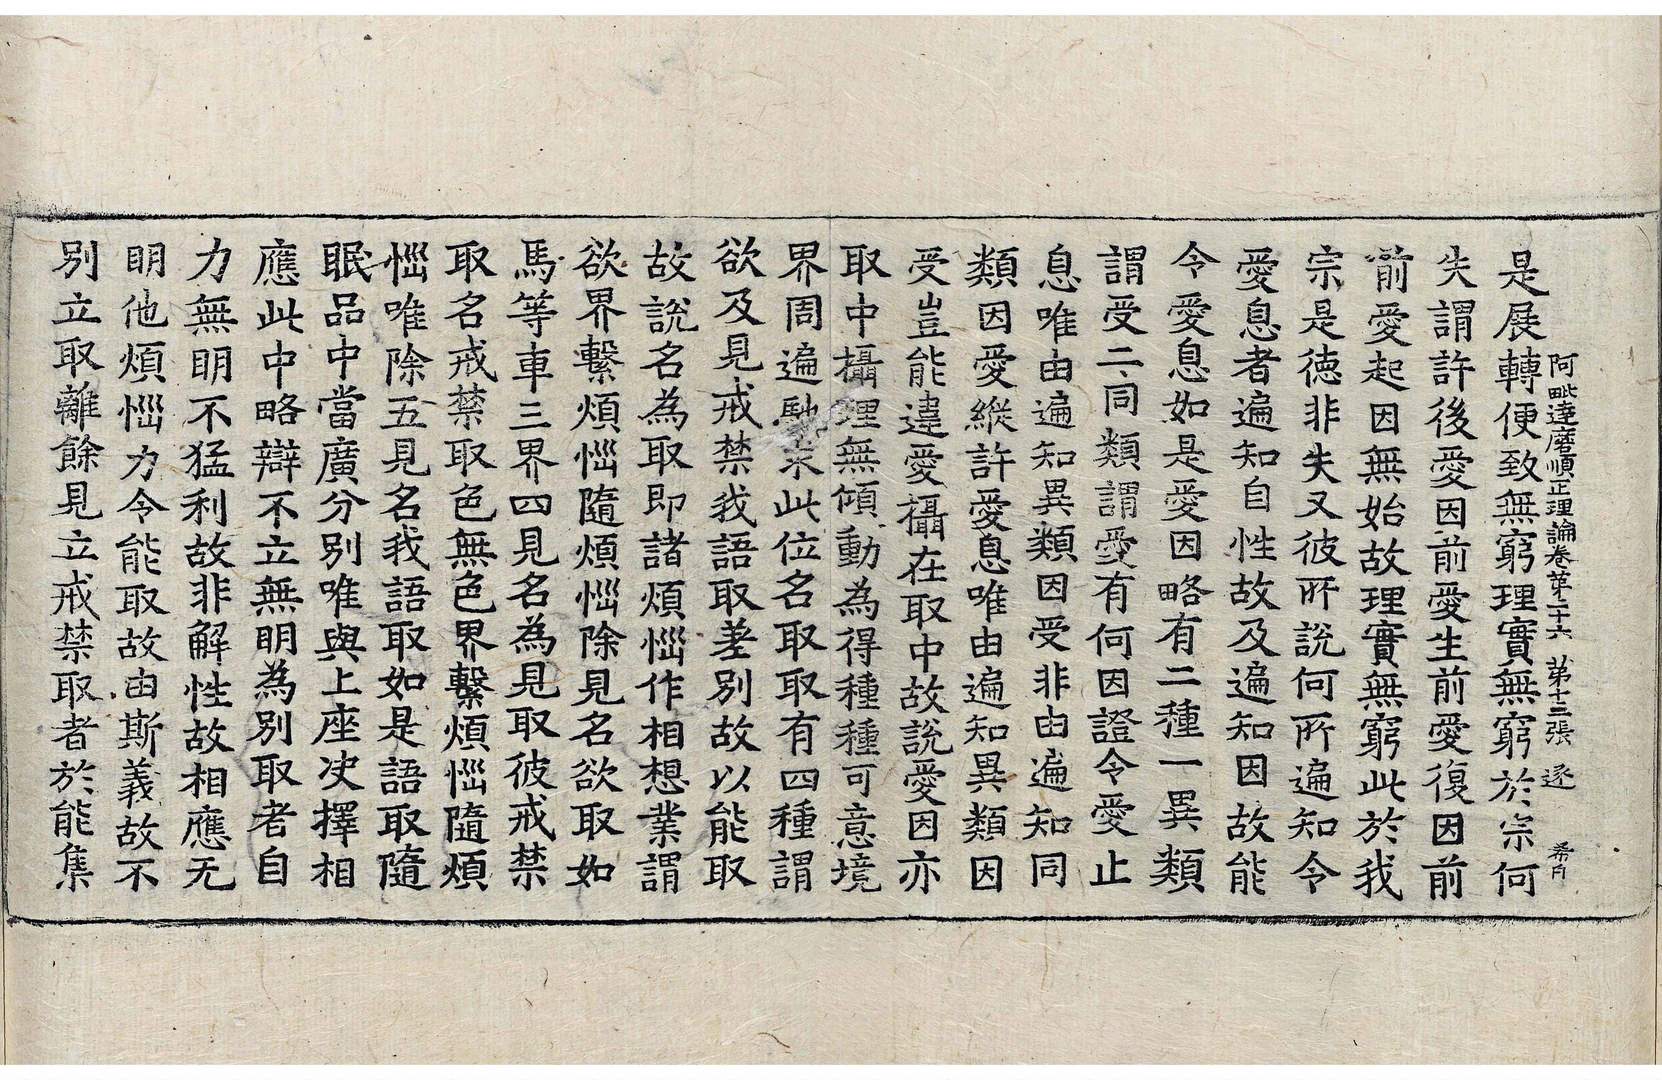 阿毗達磨順正理論卷第二十六 第十三張 逐 希内
是展轉便致無窮理實無窮於宗何
失謂許後愛因前愛生前愛復因前
前愛起因無始故理實無窮此於我
宗是德非失又彼所說何所遍知令
愛息者遍知自性故及遍知因故能
令愛息如是愛因略有二種一異類
謂受二同類謂愛有何因證令愛止
息唯由遍知異類因受非由遍知同
類因愛縱許愛息唯由遍知異類因
受豈能違愛攝在取中故說愛因亦
取中攝理無傾動為得種種可意境
界周遍馳求此位名取取有四種謂
欲及見戒禁我語取差別故以能取
故說名為取即諸煩惱作相想業謂
欲界繫煩惱隨煩惱除見名欲取如
馬等車三界四見名為見取彼戒禁
取名戒禁取色無色界繫煩惱隨煩
惱唯除五見名我語取如是語取隨
眠品中當廣分別唯與上座決擇相
應此中略辯不立無明為別取者自
力無明不猛利故非解性故相應无
明他煩惱力令能取故由斯義故不
別立取離餘見立戒禁取者於能集